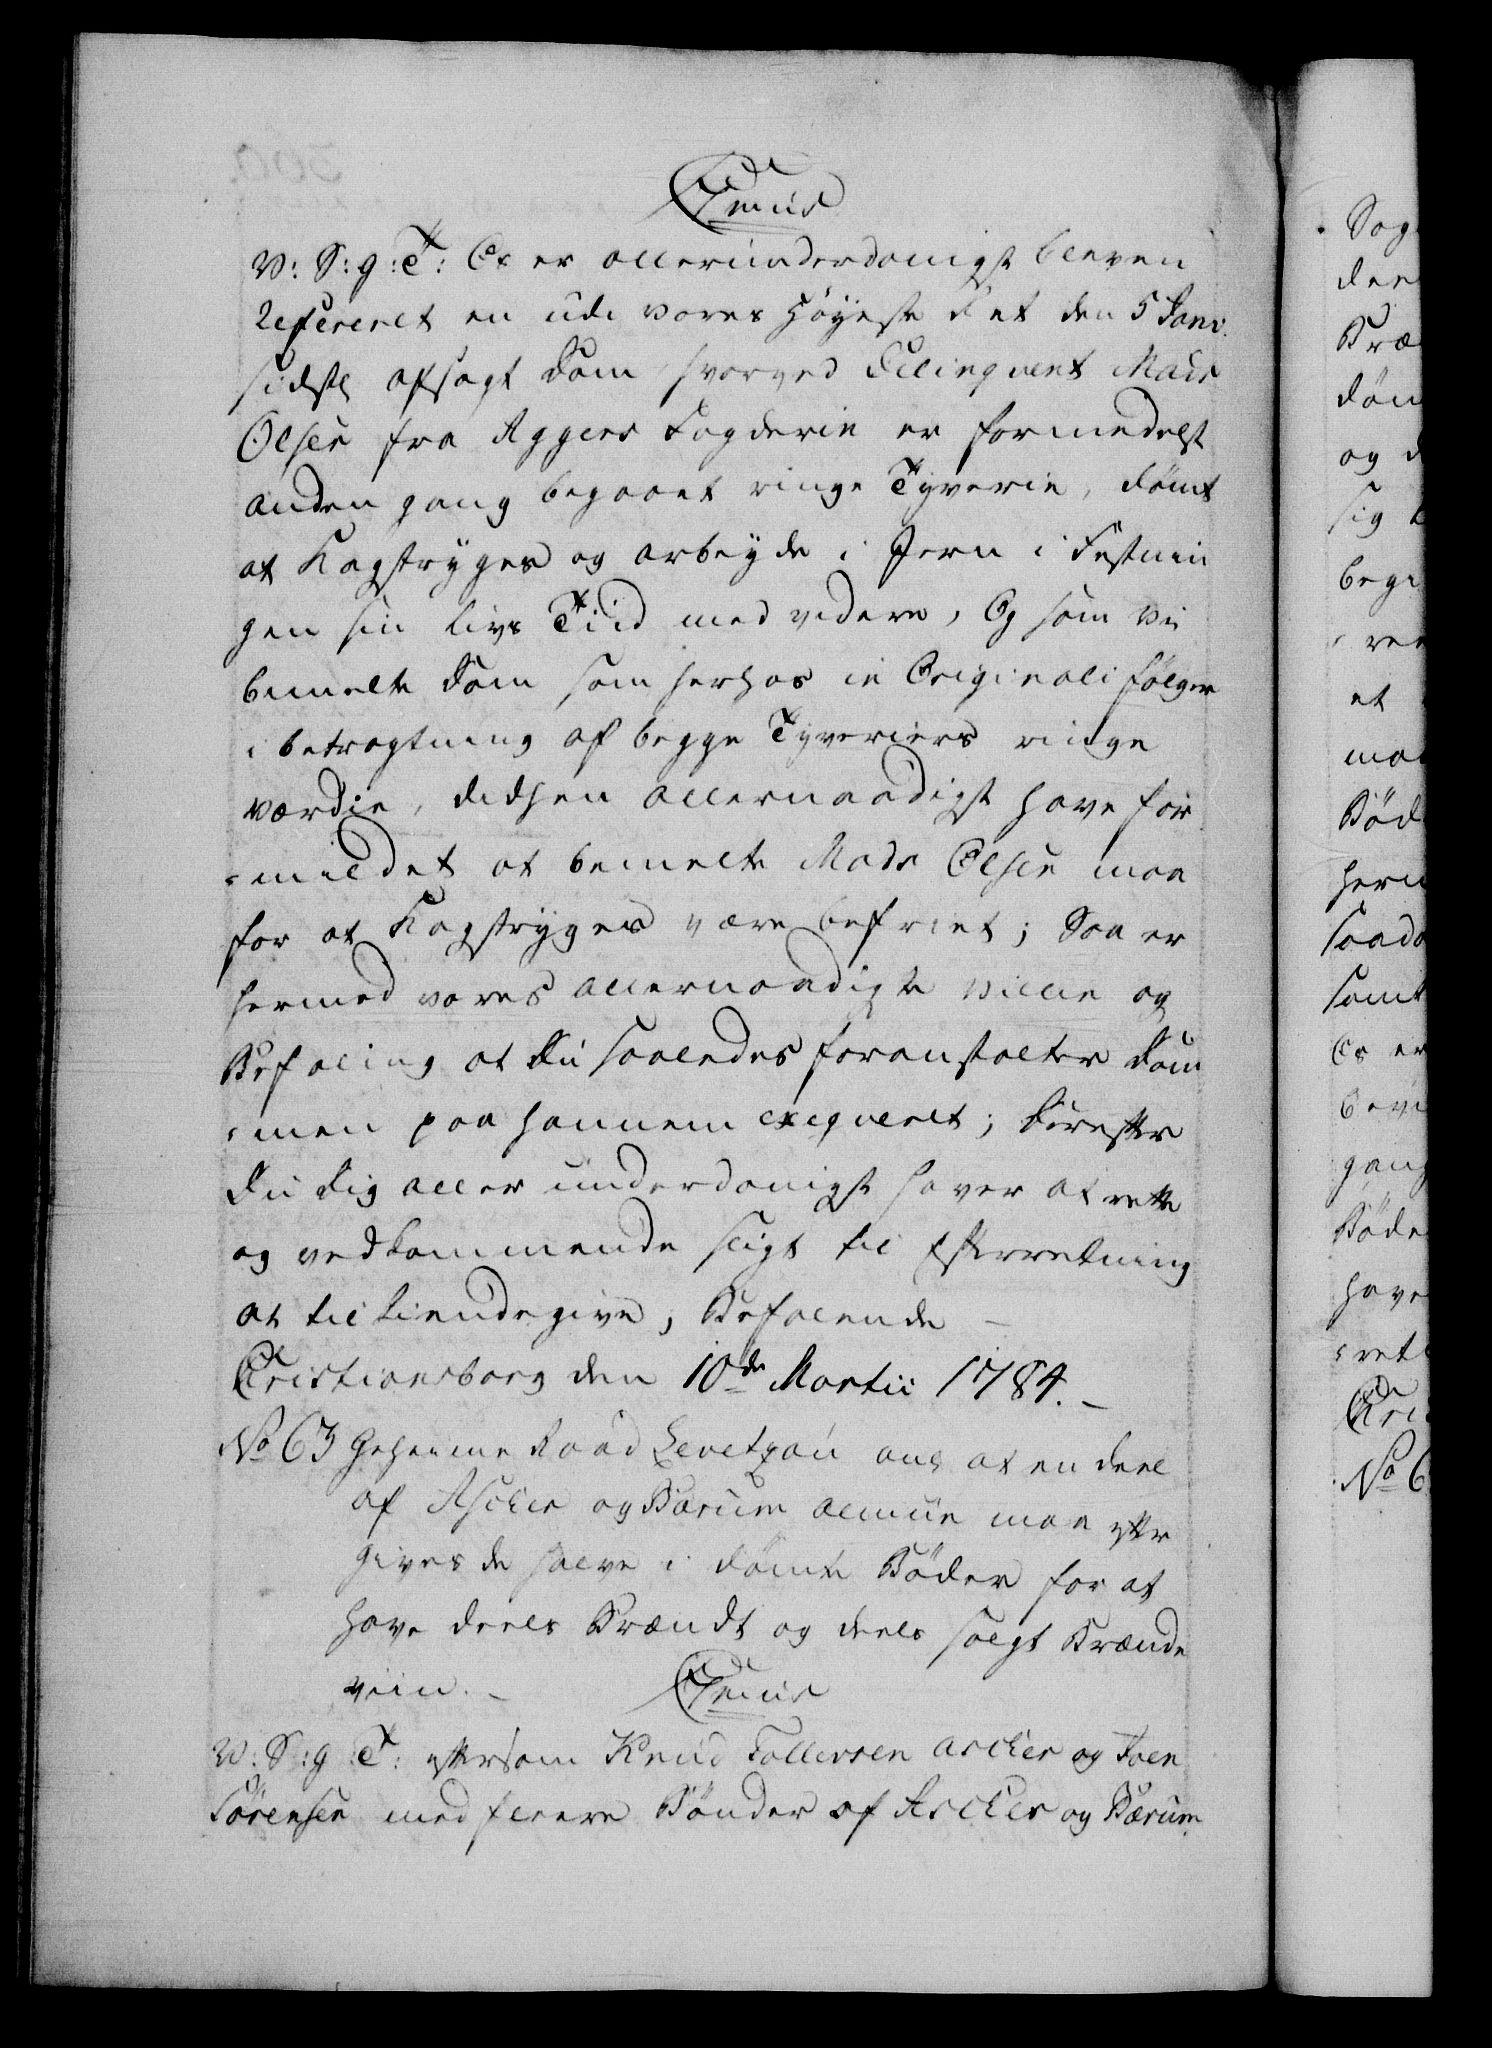 C7mus
V: S: g: T: Os er allerunderdanigst bleven
Refereret en udi vores Høyeste Ret den 5 Janv.
sidstl. afsagt Dom hvorved Delinqvent Mads
Olsen fra Aggers Fogderie er formedelst
anden gang begaaet ringe Tyverie, dømt
at Kagstryges og arbeyde i Jern i Festnin
gen sin Livs Tiid med videre, Og som Vi
bemelte Dom som herhos in Originali følger
i betragtning af begge Tyveriers ringe
værdie, dedhen allernaadigst have for
-mildet at bemelte Mads Olsen maa
for at Kagstryges være befriet; Saa er
hermed vores allernaadigste Villie og
Befaling at Du saaledes foranstalter Dom
-men paa hannem exeqveret; Derefter
Du Dig allerunderdanigst haver at rette
og vedkommende sligt til Efterretning
at tilkiendegive, Befalende –
Cristiansborg den 10de Martii 1784. –
No 63 Geheime Raad Levetzau anl at en deel
af Ascher og Bærum Almue maa efter
gives de halve i dømte Bøder for at
have deels Brændt og deels solgt Brænde
viin. – C7mus
V: S: g: T: eftersom Knud Tollevsen Ascher og Joen
Sørensen med fleere Bønder af Ascher og Bærum
Sog
dee
Bræ
døm
og d
sig
begi
ree
et
maa
Bød
herm
saada
samt
Os er
bevi
gang
Bøde
have
ret
Cri
No 6